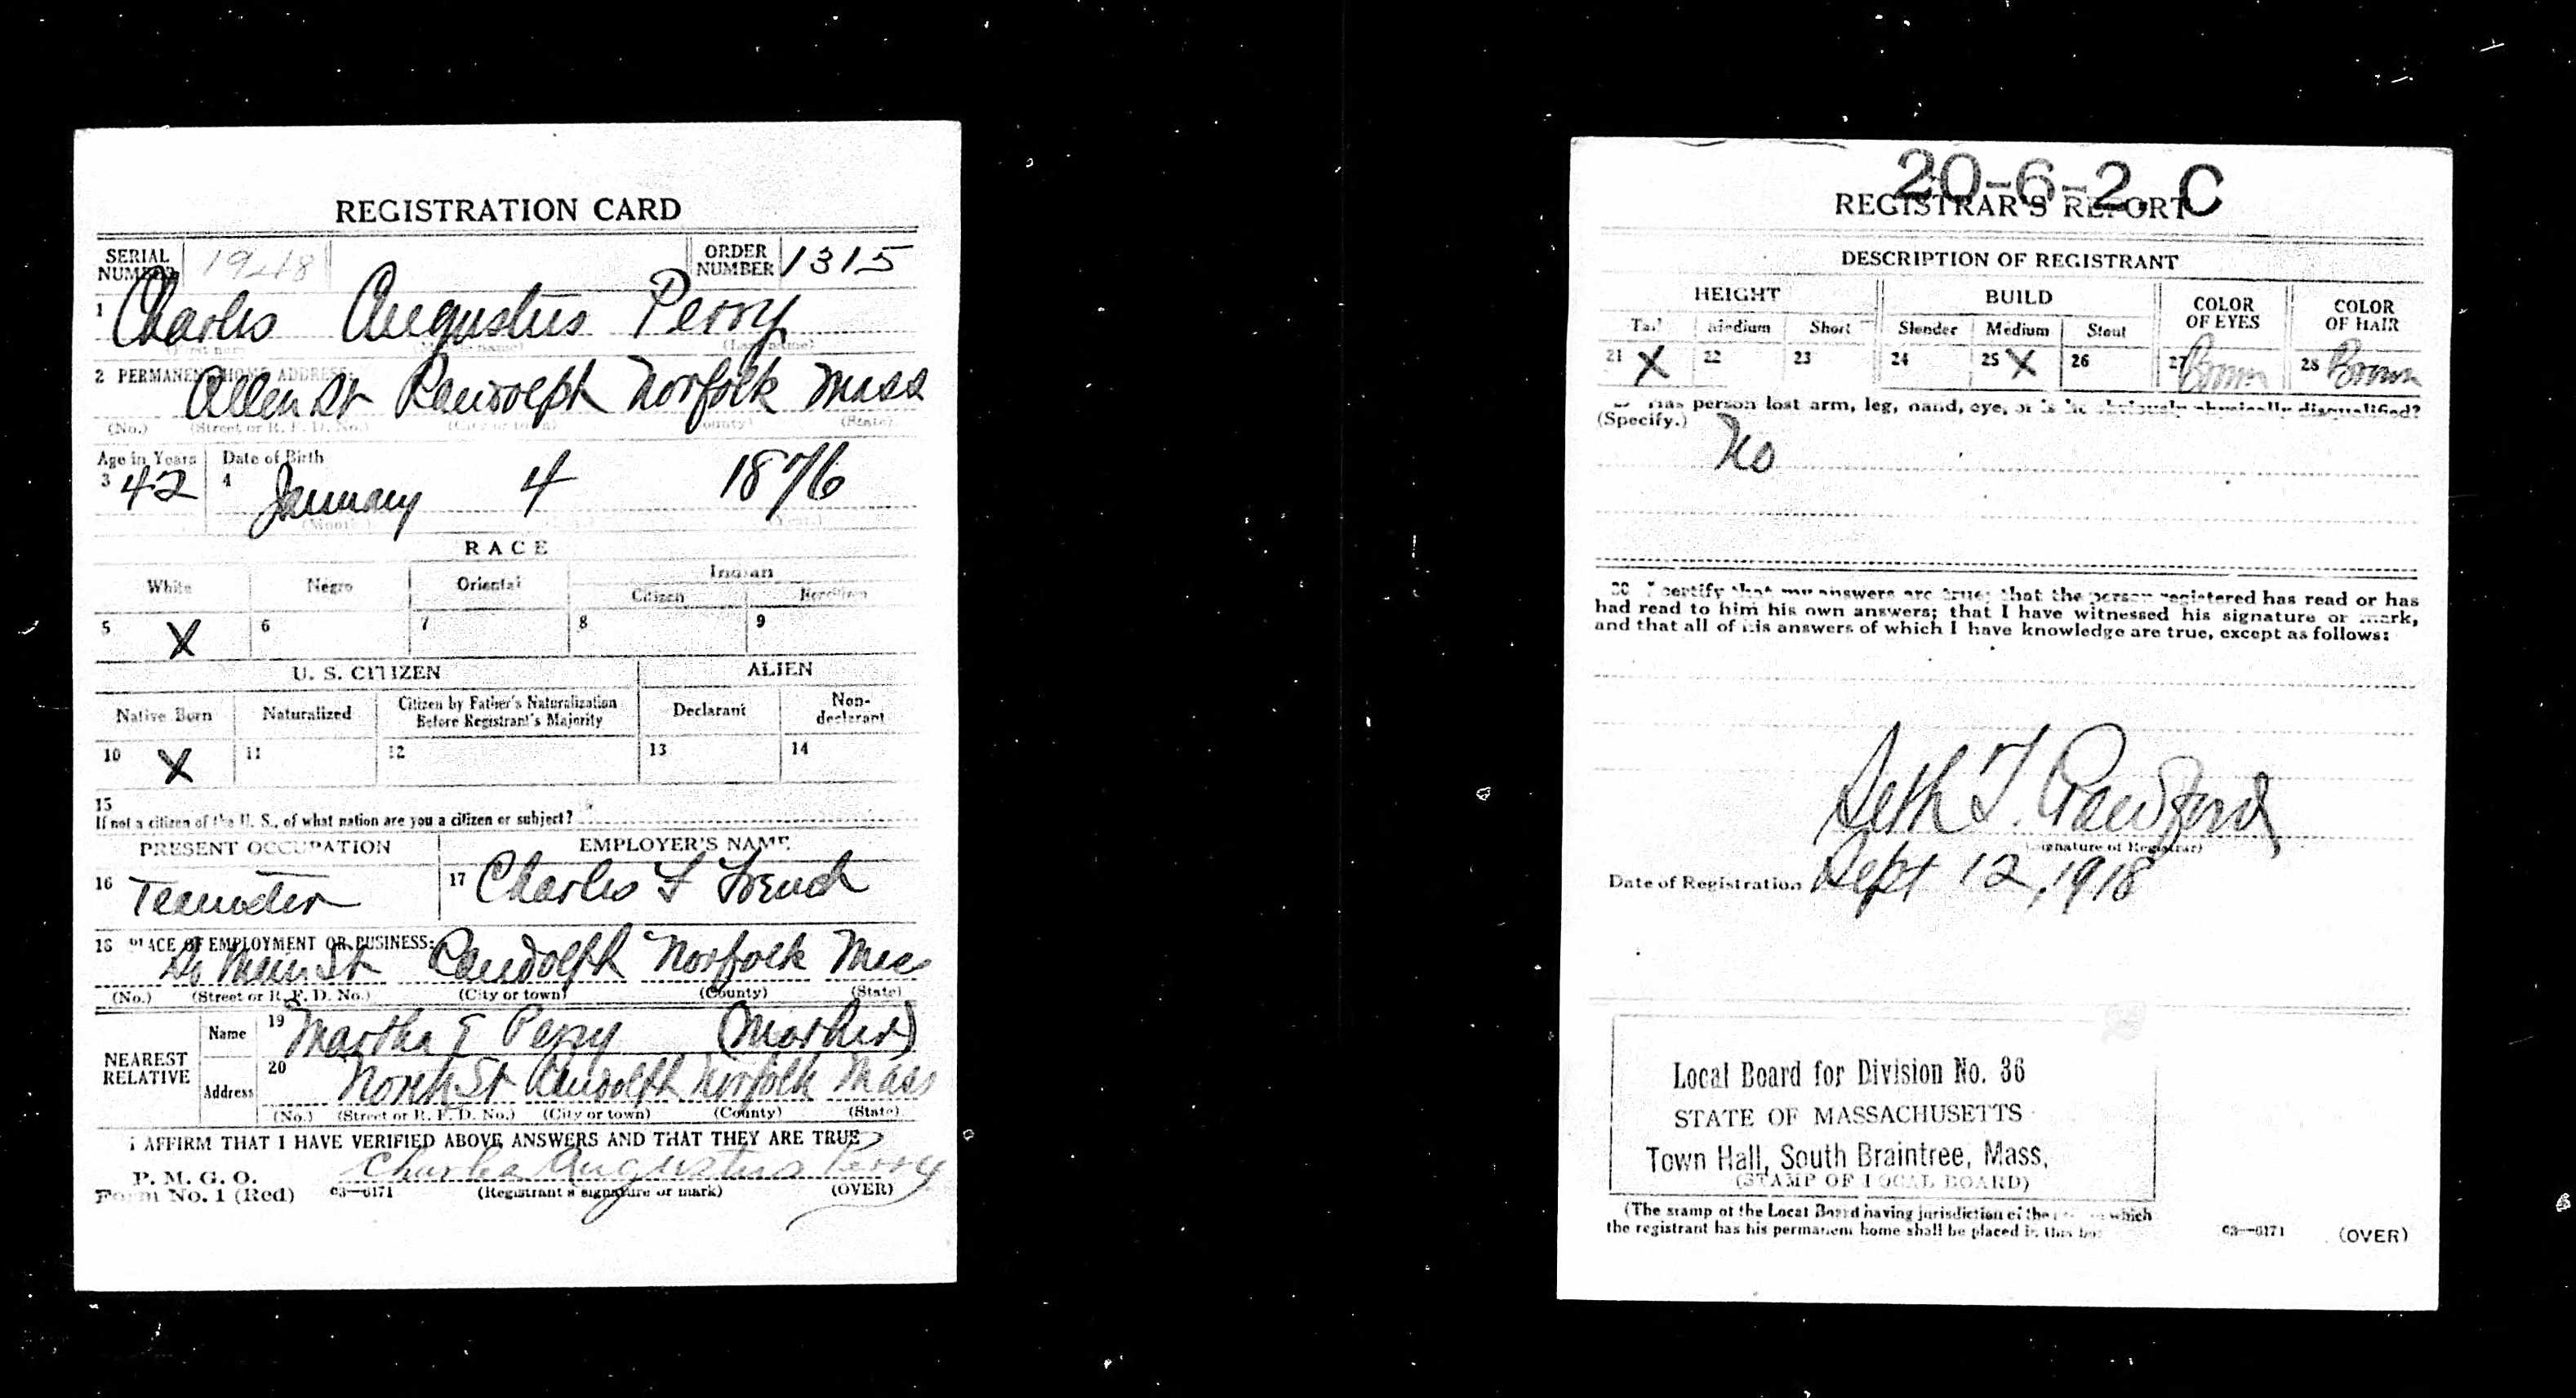 REGISTRATION CARD
SERIAL NUMBER 1948 ORDER NUMBER 1315
1 Charles Augustus Perry
(First name) (Middle name) (Last name)
2 PERMANENT HOME ADDRESS:
Allen St Randolph Norfolk Mass
(No.) (Street or R. F. D. No.) (City or town) (County) (State)
Age in Years Date of Birth
3 42 4 January 4 1876
(Month.) (Day.) (Year.)
RACE
White Negro Oriental Indian
Citizen Noncitizen
5 X 6 7 8 9
U. S. CITIZEN ALIEN
Native Born Naturalized Citizen by Father's Naturalization Before Registrant's Majority Declarant Non-declarant
10 X 11 12 13 14
15
If not a citizen of the U. S., of what nation are you a citizen or subject?
PRESENT OCCUPATION EMPLOYER'S NAME
16 Teamster 17 Charles F French
18 PLACE OF EMPLOYMENT OR BUSINESS:
So Main St Randolph Norfolk Mass
(No.) (Street or R. F. D. No.) (City or town) (County) (State)
NEAREST RELATIVE Name 19 Martha E Perry (Mother)
Address 20 North St Randolph Norfolk Mass
(No.) (Street or R. F. D. No.) (City or town) (County) (State)
I AFFIRM THAT I HAVE VERIFIED ABOVE ANSWERS AND THAT THEY ARE TRUE
P. M. G. O. Charles Augustus Perry
Form No. 1 (Red) 03—6171 (Registrant's signature or mark) (OVER)
20-6-2. C
REGISTRAR'S REPORT
DESCRIPTION OF REGISTRANT
HEIGHT BUILD COLOR OF EYES COLOR OF HAIR
Tall Medium Short Slender Medium Stout
21 X 22 23 24 25 X 26 27 Brown 28 Brown
29 Has person lost arm, leg, hand, eye, or is he obviously physically disqualified?
(Specify.) No
30 I certify that my answers are true; that the person registered has read or has
had read to him his own answers; that I have witnessed his signature or mark,
and that all of his answers of which I have knowledge are true, except as follows:
Seth T. Crawford
(Signature of Registrar)
Date of Registration Sept 12, 1918
Local Board for Division No. 36
STATE OF MASSACHUSETTS
Town Hall, South Braintree, Mass.
(STAMP OF LOCAL BOARD)
(The stamp of the Local Board having jurisdiction of the which
the registrant has his permanent home shall be placed in this box
03—6171 (OVER)